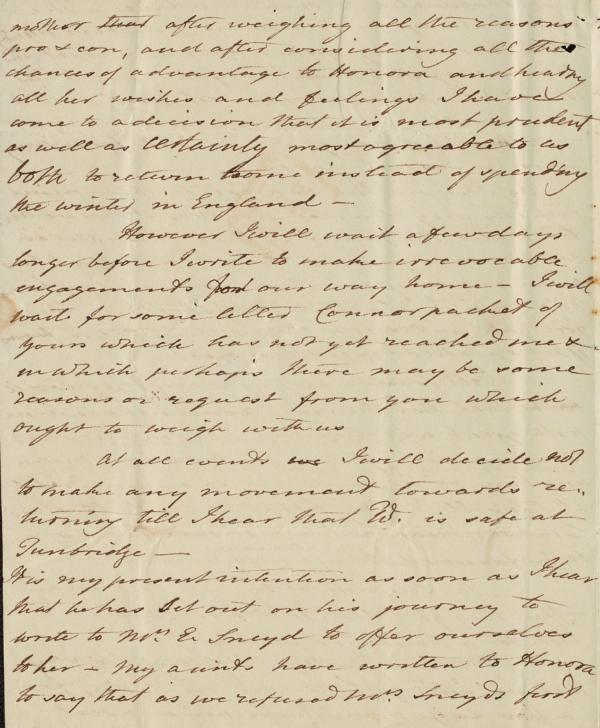 mother that after weighing all the reasons
pro & con, and after considering all the
chances of advantage to Honora and hearing
all her wishes and feelings I have
come to a decision that it is most prudent
as well as certainly most agreeable to us
both to return home instead of spending
the winter in England –
However I will wait a few days
longer before I write to make irrevocable
engagements for our way home – I will
wait for some letter Connor packet of
yours which has not yet reached me &
in which perhaps there may be some
reasons or request from you which
ought to weigh with us
At all events we I will decide not
to make any movement towards re-
turning till I hear that W. is safe at
Tunbridge —
It is my present intention as soon as I hear
that he has set out on his journey to
write to Mrs E. Sneyd to offer ourselves
to her – My aunts have written to Honora
to say that as we refused Mrs Sneyds first